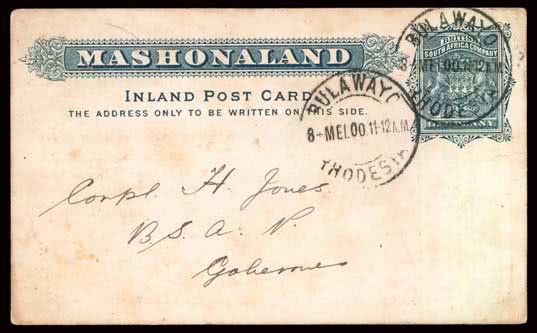 MASHONALAND
INLAND POST CARD
THE ADDRESS ONLY TO BE WRITTEN ON THIS SIDE.
BRITISH
SOUTH AFRICA COMPANY
BULAWAYO
8 ME 00.11-12A.M.
RHODESIA
BULAWAYO
8 ME 00.11-12A.M.
RHODESIA
Corpl. H. Jones
B. S. A. P.